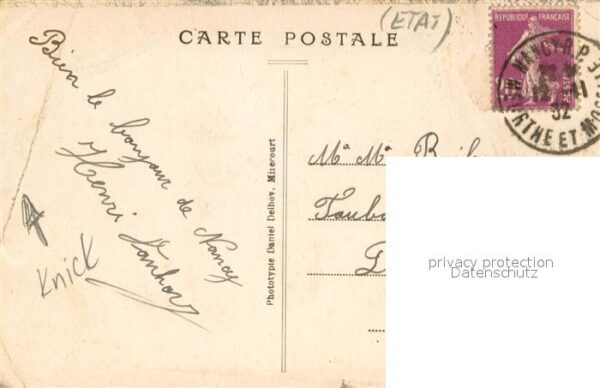 (ETAT)
CARTE POSTALE
REPUBLIQUE FRANÇAISE
POSTES
NANCY R.P.
11
32
MTHE ET MOS
Bien le bonjour de Nancy
Henri
Knick
Phototypie Daniel Delboy, Mirecourt
Ma Ma
Foubo
privacy protection
Datenschutz